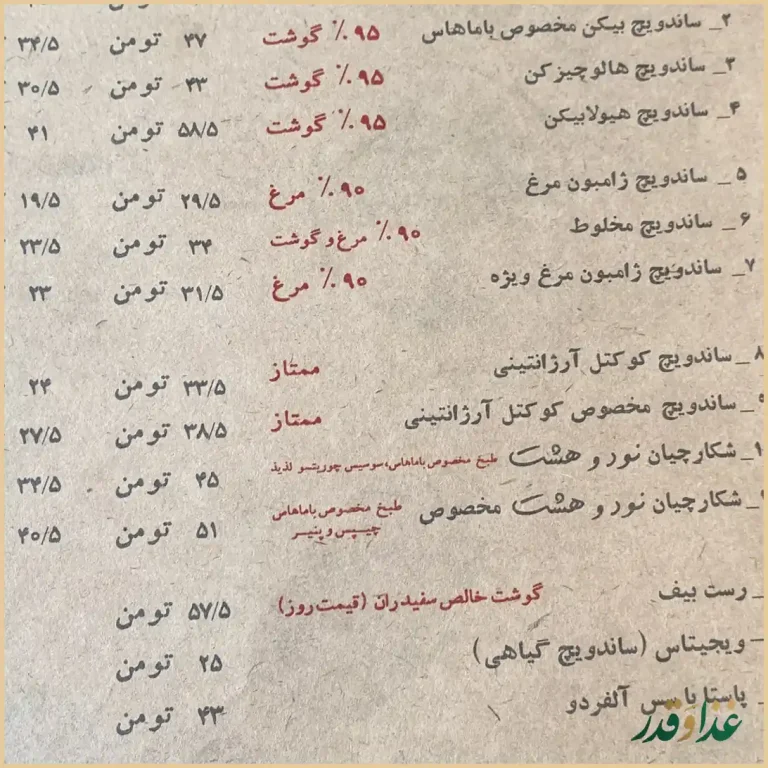 ۲_ ساندویچ بیکن مخصوص باماهاس ۹۵ ٪ گوشت ۴۷ تومن ۳۴/۵
۳_ ساندویچ هالوچیزکن ۹۵ ٪ گوشت ۴۳ تومن ۳۰/۵
۴_ ساندویچ هیولابیکن ۹۵ ٪ گوشت ۵۸/۵ تومن ۴۱
۵_ ساندویچ ژامبون مرغ ۹۰ ٪ مرغ ۲۹/۵ تومن ۱۹/۵
۶_ ساندویچ مخلوط ۹۰ ٪ مرغ و گوشت ۳۴ تومن ۲۳/۵
۷_ ساندویچ ژامبون مرغ ویژه ۹۰ ٪ مرغ ۳۱/۵ تومن ۲۳
۸_ ساندویچ کوکتل آرژانتینی ممتاز ۳۳/۵ تومن ۲۴
_ ساندویچ مخصوص کوکتل آرژانتینی ممتاز ۳۸/۵ تومن ۲۷/۵
_ شکارچیان نور و هشت طبخ مخصوص باماهاس، سوسیس چوریتسو لذیذ ۴۵ تومن ۳۴/۵
_ شکارچیان نور و هشت مخصوص طبخ مخصوص باماهاس
چیپس و پنیر ۵۱ تومن ۴۰/۵
_ رست بیف گوشت خالص سفیدران (قیمت روز) ۵۷/۵ تومن
_ ویجیتاس (ساندویچ گیاهی) ۲۵ تومن
_ پاستا با سس آلفردو ۴۳ تومن
غذا و قدر